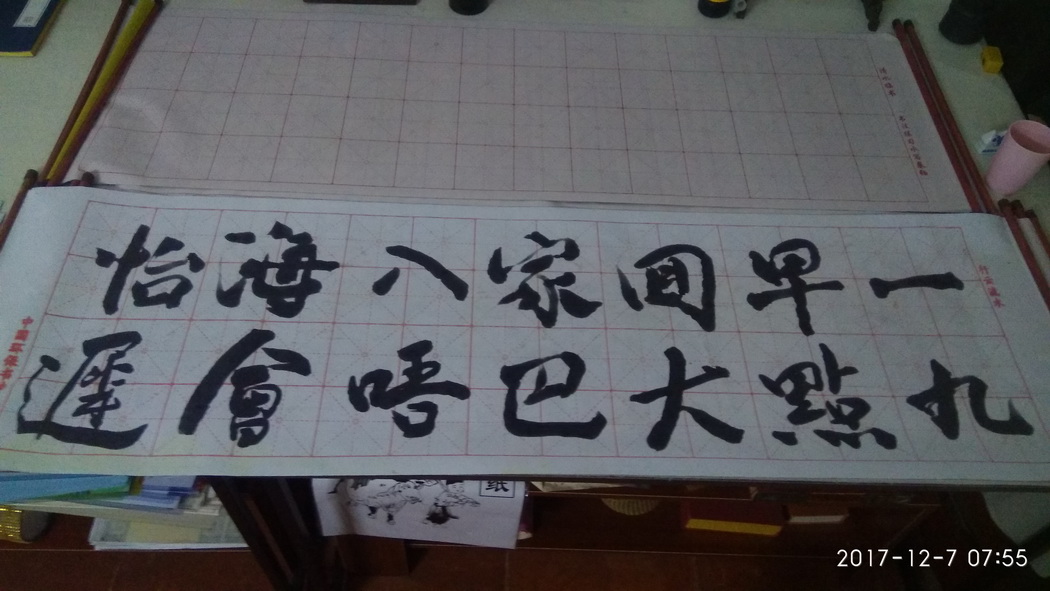 一早囬家八海怡
九點大巴唔會遲
纸
2017-12-7 07:55